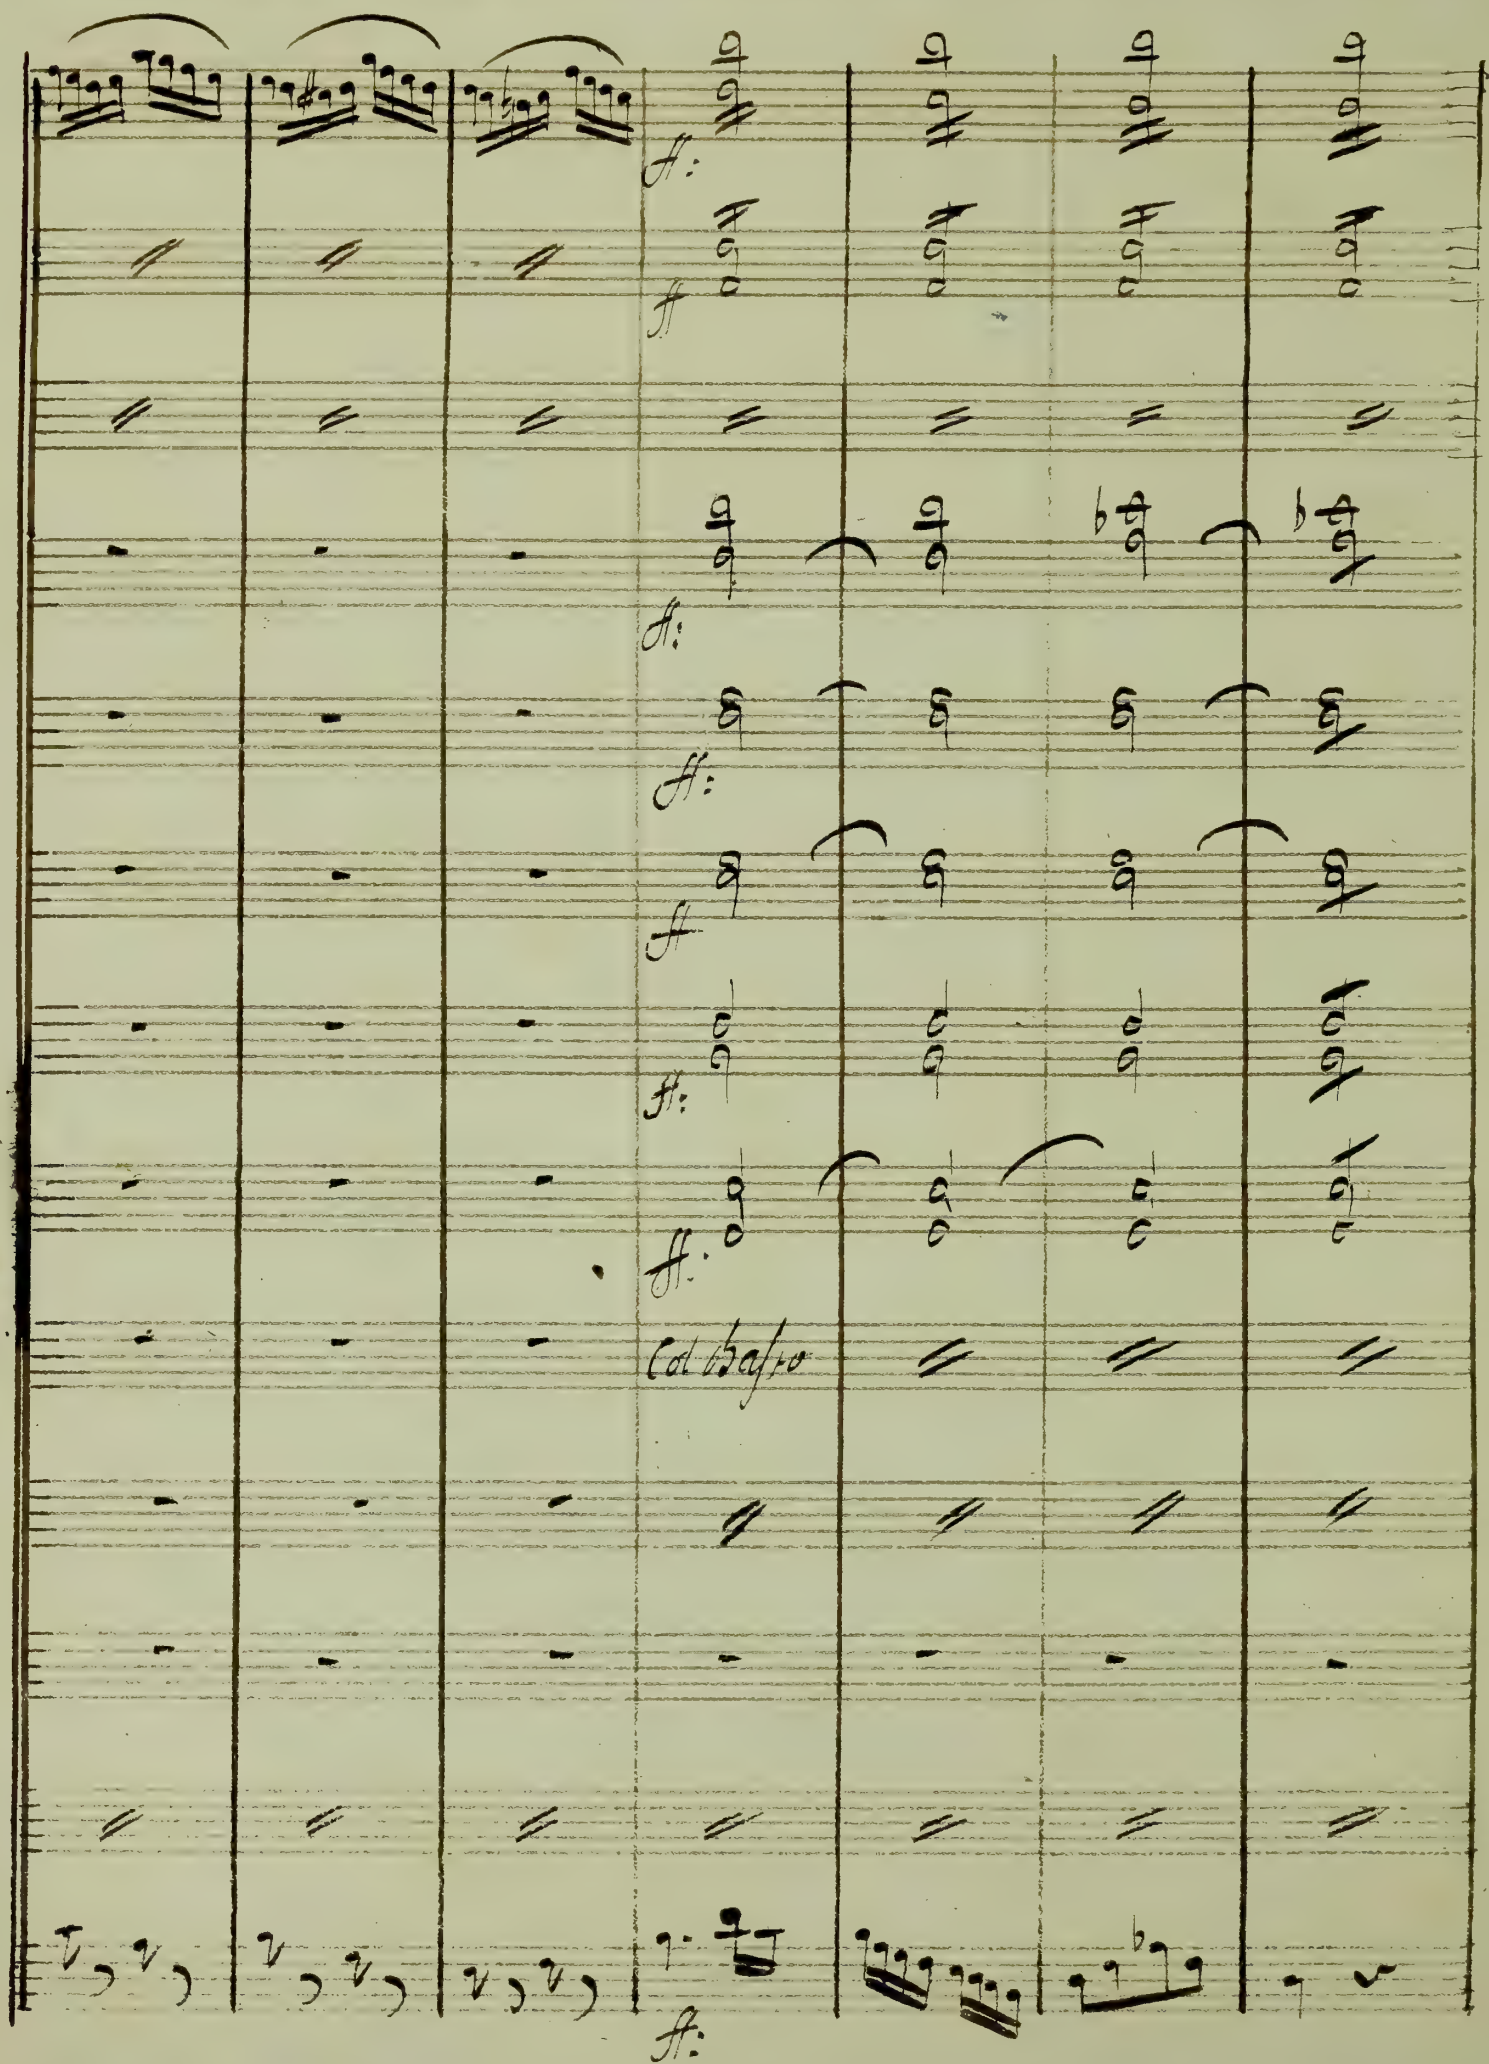 ff:
ff
ff:
ff:
ff
ff:
ff:
Col Basso
ff: